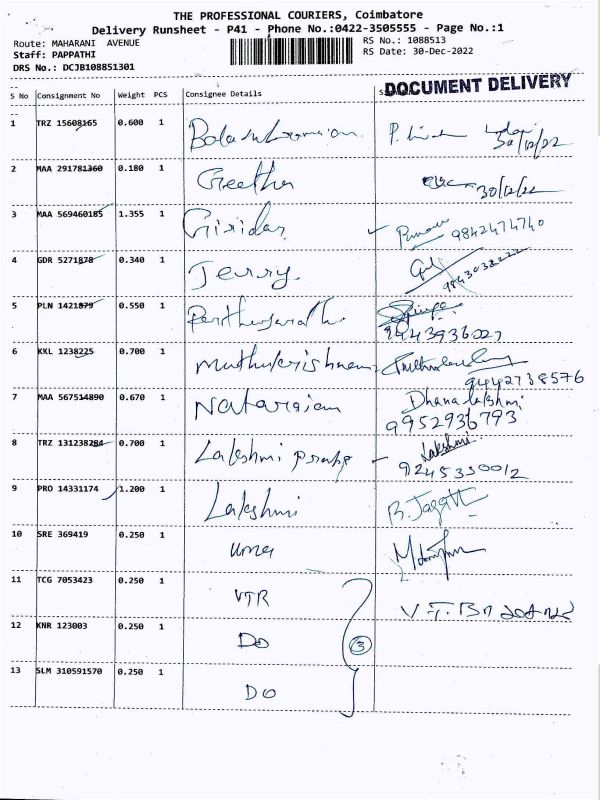 THE PROFESSIONAL COURIERS, Coimbatore
Delivery Runsheet - P41 - Phone No.:0422-3505555 - Page No.:1
Route: MAHARANI AVENUE
RS No.: 1088513
Staff: PAPPATHI
RS Date: 30-Dec-2022
DRS No.: DCJB108851301
DOCUMENT DELIVERY
S No Consignment No Weight PCS Consignee Details
1 TRZ 15608165 0.600 1
30/12/22
2 MAA 291781360 0.180 1 Geetha 30/12/22
3 MAA 569460185 1.355 1 Giridar 9842474740
4 GDR 5271878 0.340 1 Jerry 9843038222
5 PLN 1421879 0.550 1
9443936027
6 KKL 1238225 0.700 1 Muthukrishnan
9442738576
7 MAA 567514890 0.670 1 Natarajan Dhanalakshmi
9952936793
8 TRZ 131238284 0.700 1 Lakshmi Lakshmi
9245330012
9 PRO 14331174 1.200 1 Lakshmi
10 SRE 369419 0.250 1 uma
11 TCG 7053423 0.250 1 VTR
12 KNR 123003 0.250 1 DO 3
13 SLM 310591570 0.250 1 DO